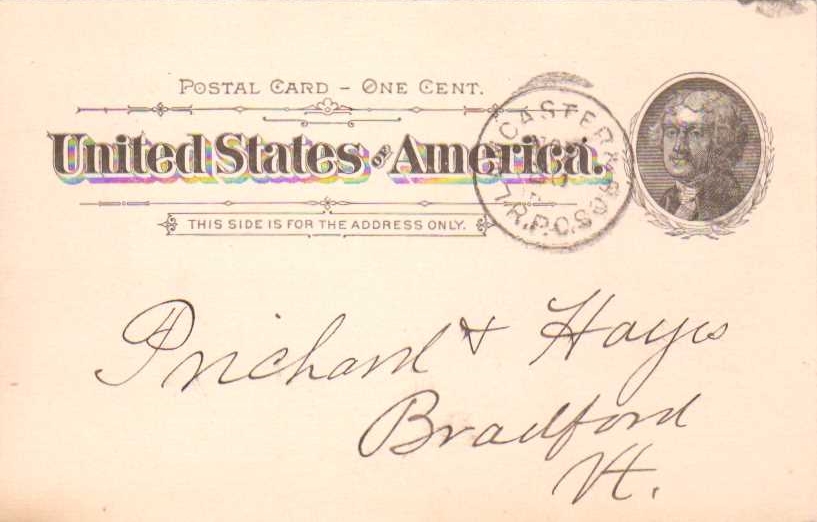 POSTAL CARD – ONE CENT.
United States OF America.
THIS SIDE IS FOR THE ADDRESS ONLY.
LANCASTER &
R.P.O.
Prichard & Hayes
Bradford
Vt.